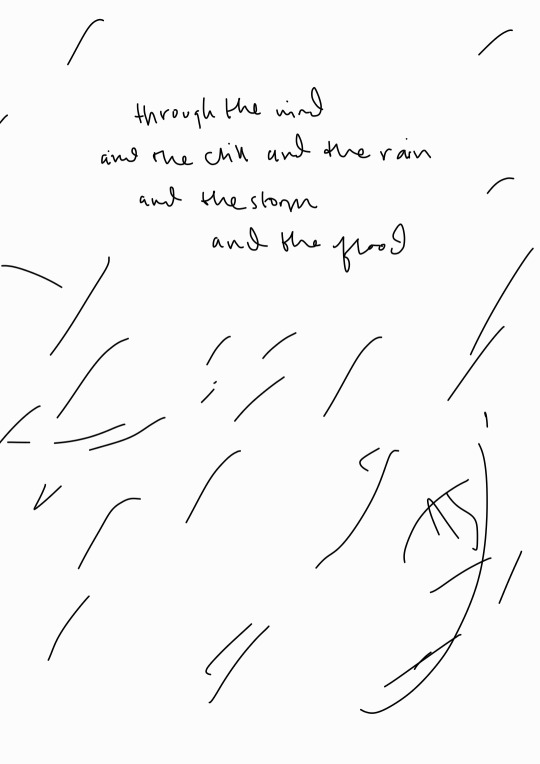 through the wind
and the chill and the rain
and the storm
and the flood